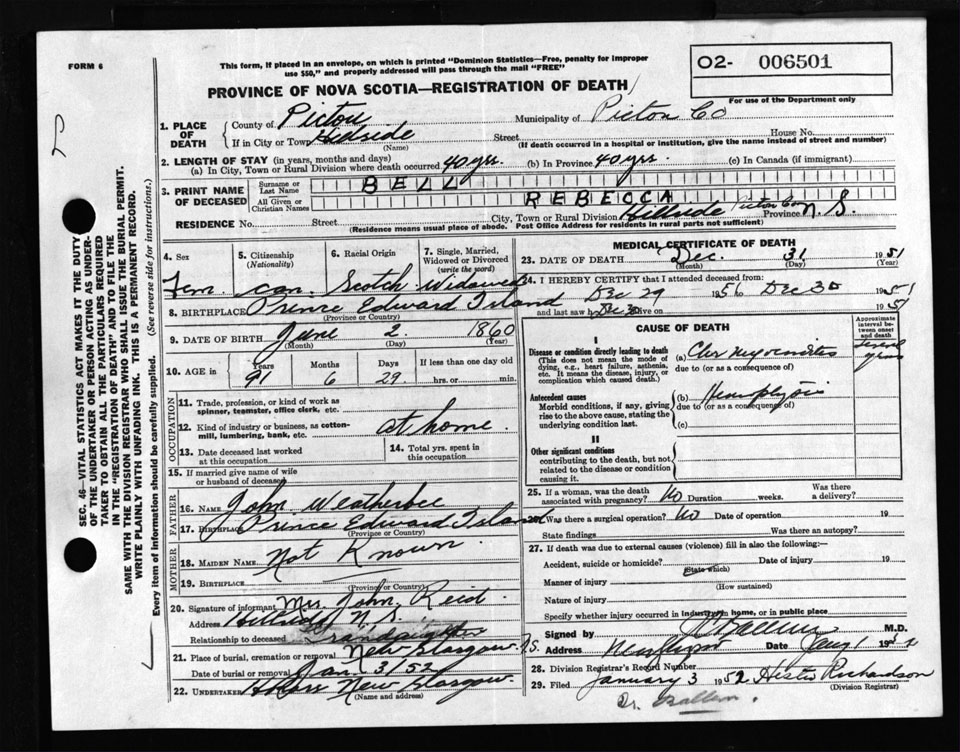 FORM 6
This form, if placed in an envelope, on which is printed "Dominion Statistics—Free, penalty for improper
use $50," and properly addressed will pass through the mail "FREE"
O2- 006501
For use of the Department only
PROVINCE OF NOVA SCOTIA—REGISTRATION OF DEATH
1. PLACE OF DEATH
County of Pictou Municipality of Pictou Co
If in City or Town Hillside Street House No.
(Name) (If death occurred in a hospital or institution, give the name instead of street and number)
2. LENGTH OF STAY (in years, months and days)
(a) In City, Town or Rural Division where death occurred 40 yrs. (b) In Province 40 yrs. (c) In Canada (if immigrant)
3. PRINT NAME OF DECEASED
Surname or Last Name BELL
All Given or Christian Names REBECCA
RESIDENCE No. Street City, Town or Rural Division Hillside Pictou Co Province N. S.
(Residence means usual place of abode. Post Office Address for residents in rural parts not sufficient)
4. Sex 5. Citizenship 6. Racial Origin 7. Single, Married,
(Nationality) Widowed or Divorced
(write the word)
Fem. Can. Scotch Widowed
8. BIRTHPLACE Prince Edward Island
(Province or Country)
9. DATE OF BIRTH June 2 1860
(Month) (Day) (Year)
10. AGE in Years Months Days If less than one day old
91 6 29 hrs. or min.
OCCUPATION
11. Trade, profession, or kind of work as
spinner, teamster, office clerk, etc.
12. Kind of industry or business, as cotton-
mill, lumbering, bank, etc. at home.
13. Date deceased last worked
at this occupation
14. Total yrs. spent in
this occupation
15. If married give name of wife
or husband of deceased
FATHER
16. NAME John Weatherbee
17. BIRTHPLACE Prince Edward Island
MOTHER
18. MAIDEN NAME Not Known.
19. BIRTHPLACE
(Province or Country)
20. Signature of informant Mrs. John Reid.
Address Hillside N. S.
Relationship to deceased Grandaughter
21. Place of burial, cremation or removal New Glasgow N.S.
Date of burial or removal Jan. 3/52
22. Undertaker New Glasgow.
(Name and address)
MEDICAL CERTIFICATE OF DEATH
23. DATE OF DEATH Dec. 31 1951
(Month) (Day) (Year)
24. I HEREBY CERTIFY that I attended deceased from:
Dec 29 195 Dec 30 1951
and last saw alive on Dec 30 1951
CAUSE OF DEATH
Approximate
interval be-
tween onset
and death
I
Disease or condition directly leading to death
(This does not mean the mode of
dying, e.g., heart failure, asthenia,
etc. It means the disease, injury, or
complication which caused death.)
(a) Chr myocarditis several years
due to (or as a consequence of)
Antecedent causes
Morbid conditions, if any, giving
rise to the above cause, stating the
underlying condition last.
(b)
due to (or as a consequence of)
(c)
II
Other significant conditions
contributing to the death, but not
related to the disease or condition
causing it.
25. If a woman, was the death
associated with pregnancy? No Duration weeks. Was there
a delivery?
26. Was there a surgical operation? No Date of operation 19
State findings Was there an autopsy?
27. If death was due to external causes (violence) fill in also the following:—
Accident, suicide or homicide? Date of injury 19
(State which)
Manner of injury
(How sustained)
Nature of injury
Specify whether injury occurred in industry, in home, or in public place
Signed by M.D.
Address Date Jany 1 1952
28. Division Registrar's Record Number
29. Filed January 3 1952 Hester Richardson
(Division Registrar)
Dr.
SEC. 46—VITAL STATISTICS ACT MAKES IT THE DUTY
OF THE UNDERTAKER OR PERSON ACTING AS UNDER-
TAKER TO OBTAIN ALL THE PARTICULARS REQUIRED
IN THE "REGISTRATION OF DEATH" AND TO FILE THE
SAME WITH THE DIVISION REGISTRAR WHO SHALL ISSUE THE BURIAL PERMIT.
WRITE PLAINLY WITH UNFADING INK. THIS IS A PERMANENT RECORD.
Every item of information should be carefully supplied. (See reverse side for instructions.)